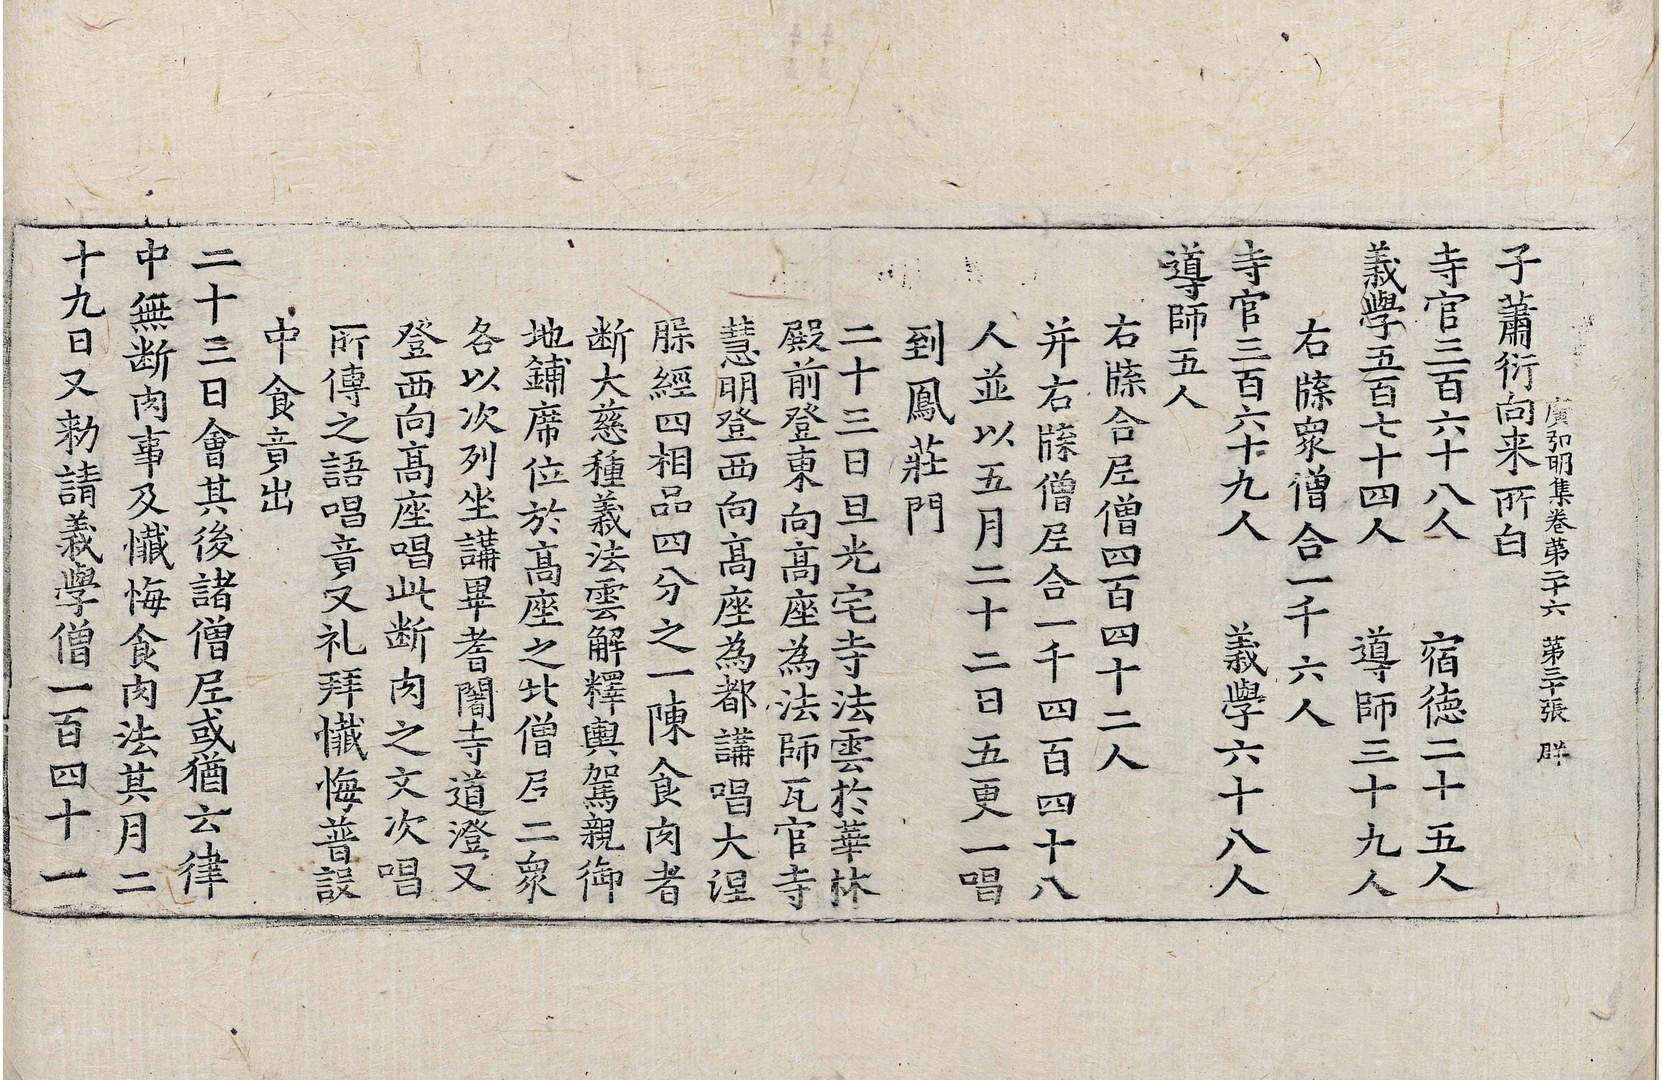 廣弘明集卷第二十六 第三十張 群
子蕭衍向来所白
寺官三百六十八人 宿徳二十五人
義學五百七十四人 導師三十九人
右牒衆僧合一千六人
寺官三百六十九人 義學六十八人
導師五人
右牒合尼僧四百四十二人
并右牒僧尼合一千四百四十八
人並以五月二十二日五更一唱
到鳳莊門
二十三日旦光宅寺法雲於華林
殿前登東向髙座為法師瓦官寺
慧明登西向髙座為都講唱大涅
槃經四相品四分之一陳食肉者
断大慈種義法雲解釋輿駕親御
地鋪席位於髙座之北僧尼二衆
各以次列坐講畢耆闍寺道澄又
登西向髙座唱此断肉之文次唱
所傳之語唱音又礼拜懺悔普設
中食音出
二十三日會其後諸僧尼或猶云律
中無断肉事及懺悔食肉法其月二
十九日又勑請義學僧一百四十一